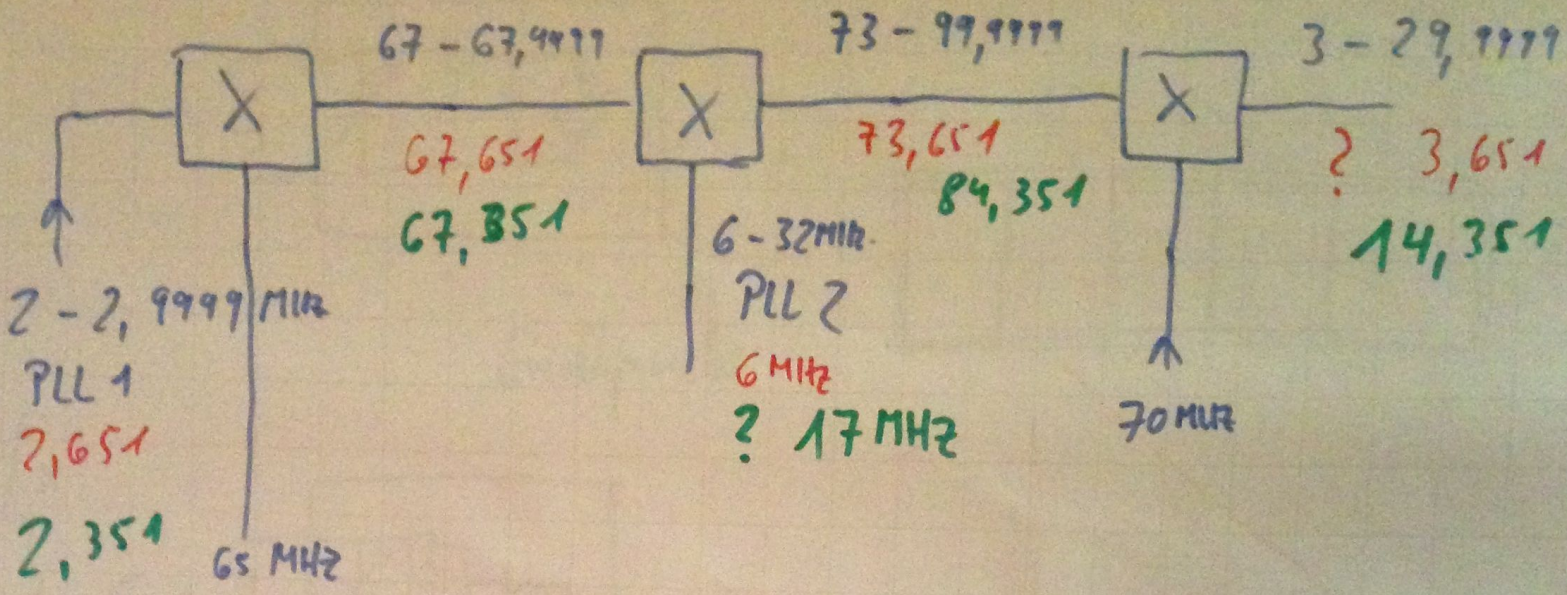 67 - 67,9999
73 - 99,9999
3 - 29,9999
X
X
X
67,651
67,351
73,651
84,351
? 3,651
14,351
2 - 2,9999 MHz
PLL 1
2,651
2,351
65 MHz
6 - 32 MHz.
PLL 2
6 MHz
? 17 MHz
70 MHz